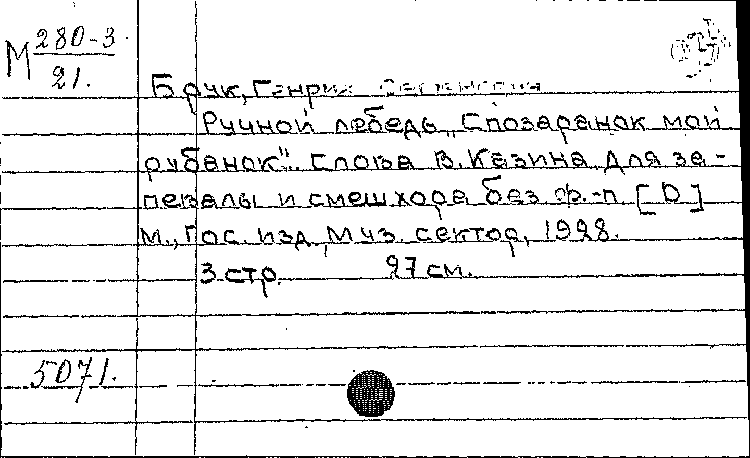 М 280-3
21.
Брук, Генрих
Ручной лебедь „Спозаранок мой
рубанок". Слова В. Казина. Для за-
певалы и смеш хора без ф.-п. [D]
М., Гос. изд., Муз. сектор, 1928.
3 стр. 27 см.
5071.